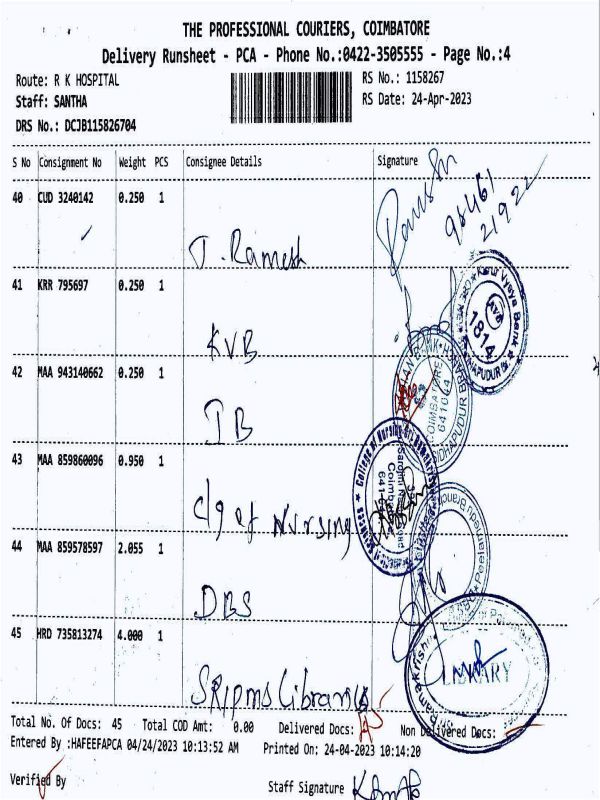 THE PROFESSIONAL COURIERS, COIMBATORE
Delivery Runsheet - PCA - Phone No.:0422-3505555 - Page No.:4
Route: R K HOSPITAL
RS No.: 1158267
Staff: SANTHA
RS Date: 24-Apr-2023
DRS No.: DCJB115826704
S No Consignment No Weight PCS Consignee Details Signature
40 CUD 3240142 0.250 1
J. Ramesh
41 KRR 795697 0.250 1
KVB
Karur Vysya Bank
KVB
1814
42 MAA 943140662 0.250 1
IB
COIMBATORE
641044
SIDHAPUDUR
43 MAA 859860096 0.950 1
Clg of Nursing
College of Nursing
44 MAA 859578597 2.055 1
DBS
Peelamedu Branch
45 HRD 735813274 4.000 1
SRIPMS Library
LIBRARY
Total No. Of Docs: 45 Total COD Amt: 0.00 Delivered Docs: Non Delivered Docs:
Entered By :HAFEEFAPCA 04/24/2023 10:13:52 AM Printed On: 24-04-2023 10:14:20
Verified By
Staff Signature